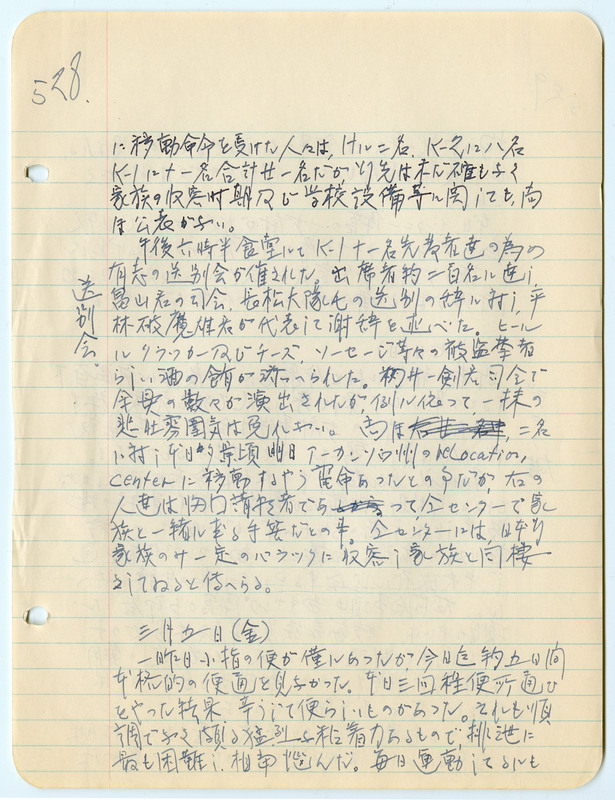 528.
に移動命令を受けた人々は、Hルニ名、K-2に八名
K-1に十一名合計廿一名だが 先は未だ確もなく
家族の収容時期及び学校設備等に関しても、尚
ほ公表がない。
午後六時半食堂にて K-1十一名先発者達の為の
有志の送別会が催された。出席者約二百名に達し
送別会。
畠山君の司会、長松大隊長の送別の辞に対し、平
林破魔雄君が代表して謝辞を述べた。ビール
にクラッカー及びチーズ、ソーセージ等々の
らしい酒の肴が添へられた。 一剣君司会で
余興の数々が演出されたが、例に従って、一抹の
悲壮雰囲気は免れない。尚ほ 、二名
に対し 明日アーカンソウ州のrelocation,
centerに移動するやう 命あったとの事だが、右の
人達は 請求者であ って、仝センターで家
族と一緒に する手筈だとの事。仝センターには、
家族のみ一定のバラックに収容し家族と同棲
させてゐると伝へらる。
三月五日(金)
一昨日小指の便が僅にあったが、今日迄約五日間
本格的の便通を見なかった。本日三回程便所通ひ
をやった結果 辛うじて便らしいものがあった。それも順
調でなく頗る猛烈な粘着力あるもので、排泄に
最も困難し、相当悩んだ。毎日運動してるにも